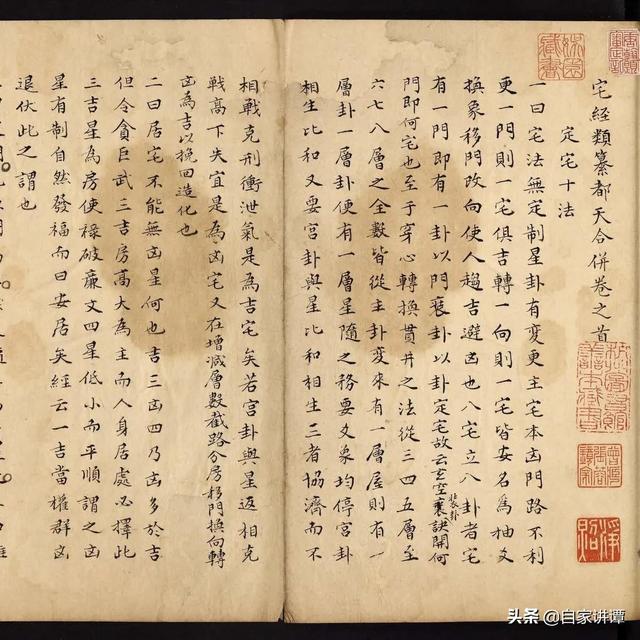 宅經類纂都天合併卷之首
定宅十法
一曰宅法無定制星卦有變更主宅本凶門路不利
更一門則一宅俱吉轉一向則一宅皆安名為抽爻
換象移門改向使人趨吉避凶也八宅立八卦者宅
有一門即有一卦以門裝卦以卦定宅故云玄空裝訣開何
裝卦
門即何宅也至于穿心轉換貫井之法從三四五層至
六七八層之全數皆從主卦變來有一層屋則有一
層卦一層卦便有一層星隨之務要爻象均停宮卦
相生比和又要宮卦與星比和相生三者協濟而不
相戰克刑衝泄氣是為吉宅矣若宮卦與星返相克
戰高下失宜是為凶宅又在增減層數截路分房移門換向轉
凶為吉以挽回造化也
二曰居宅不能無凶星何也吉三凶四乃凶多於吉
但令貪巨武三吉房高大為主而人身居處必擇此
三吉星為房使祿破廉文四星低小而平順謂之凶
星有制自然發福而曰安居矣經云一吉當權群凶
退伏此之謂也
头条 @自家讲谭